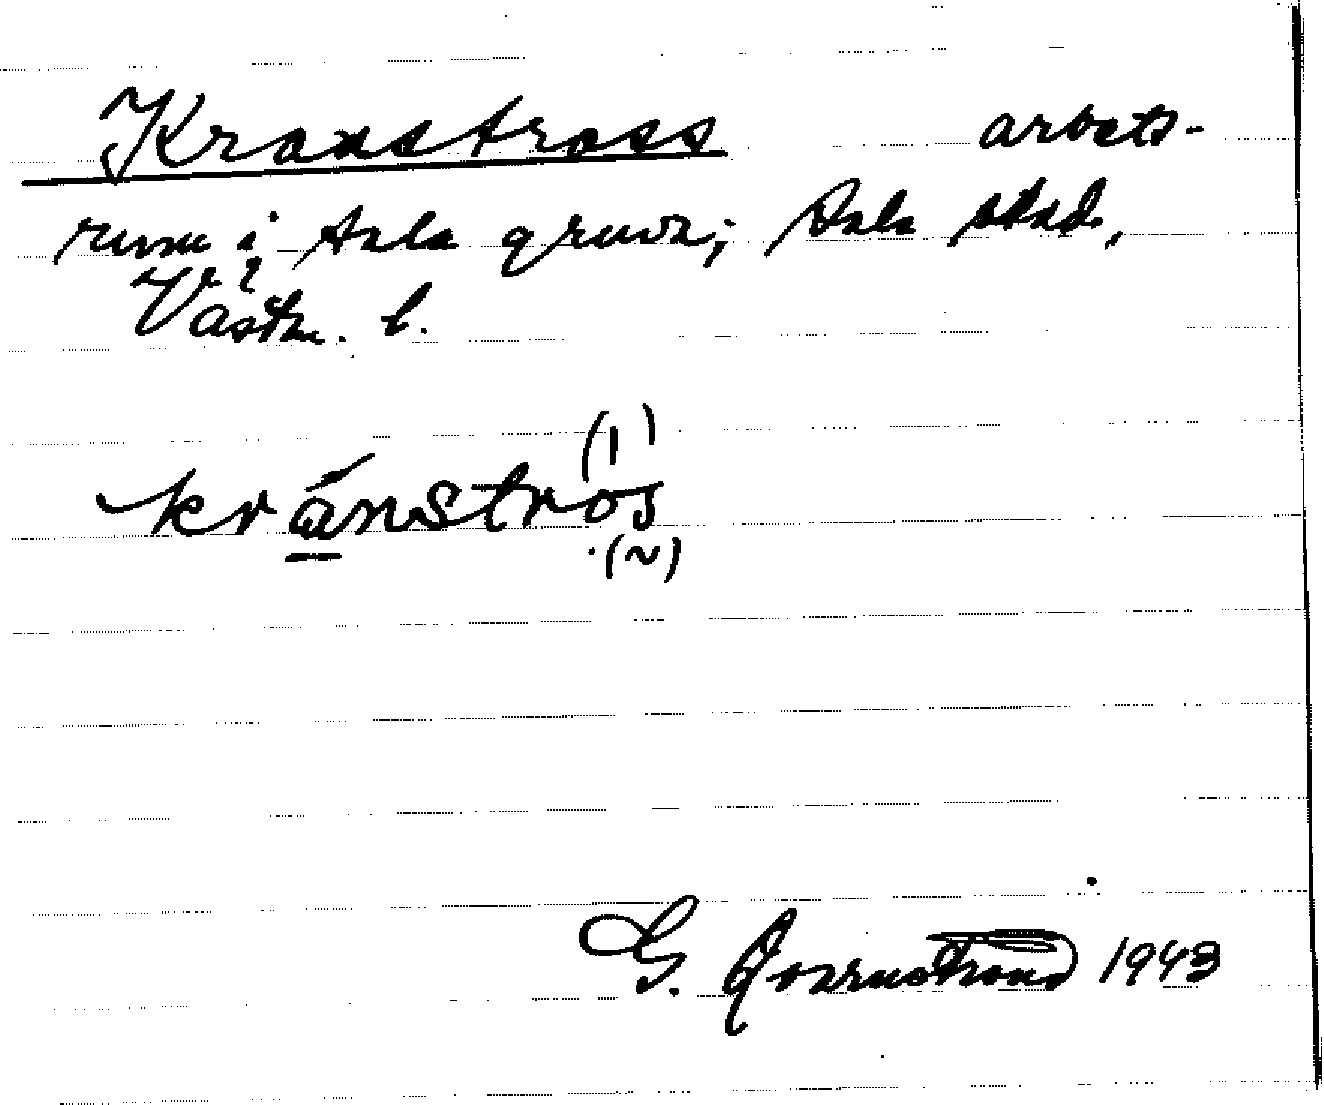 Kranstross arbets-
rum i Sala gruva; Sala stad,
Västm. l.
(ı)
kránstros
(~)
G. Qvarnström 1943